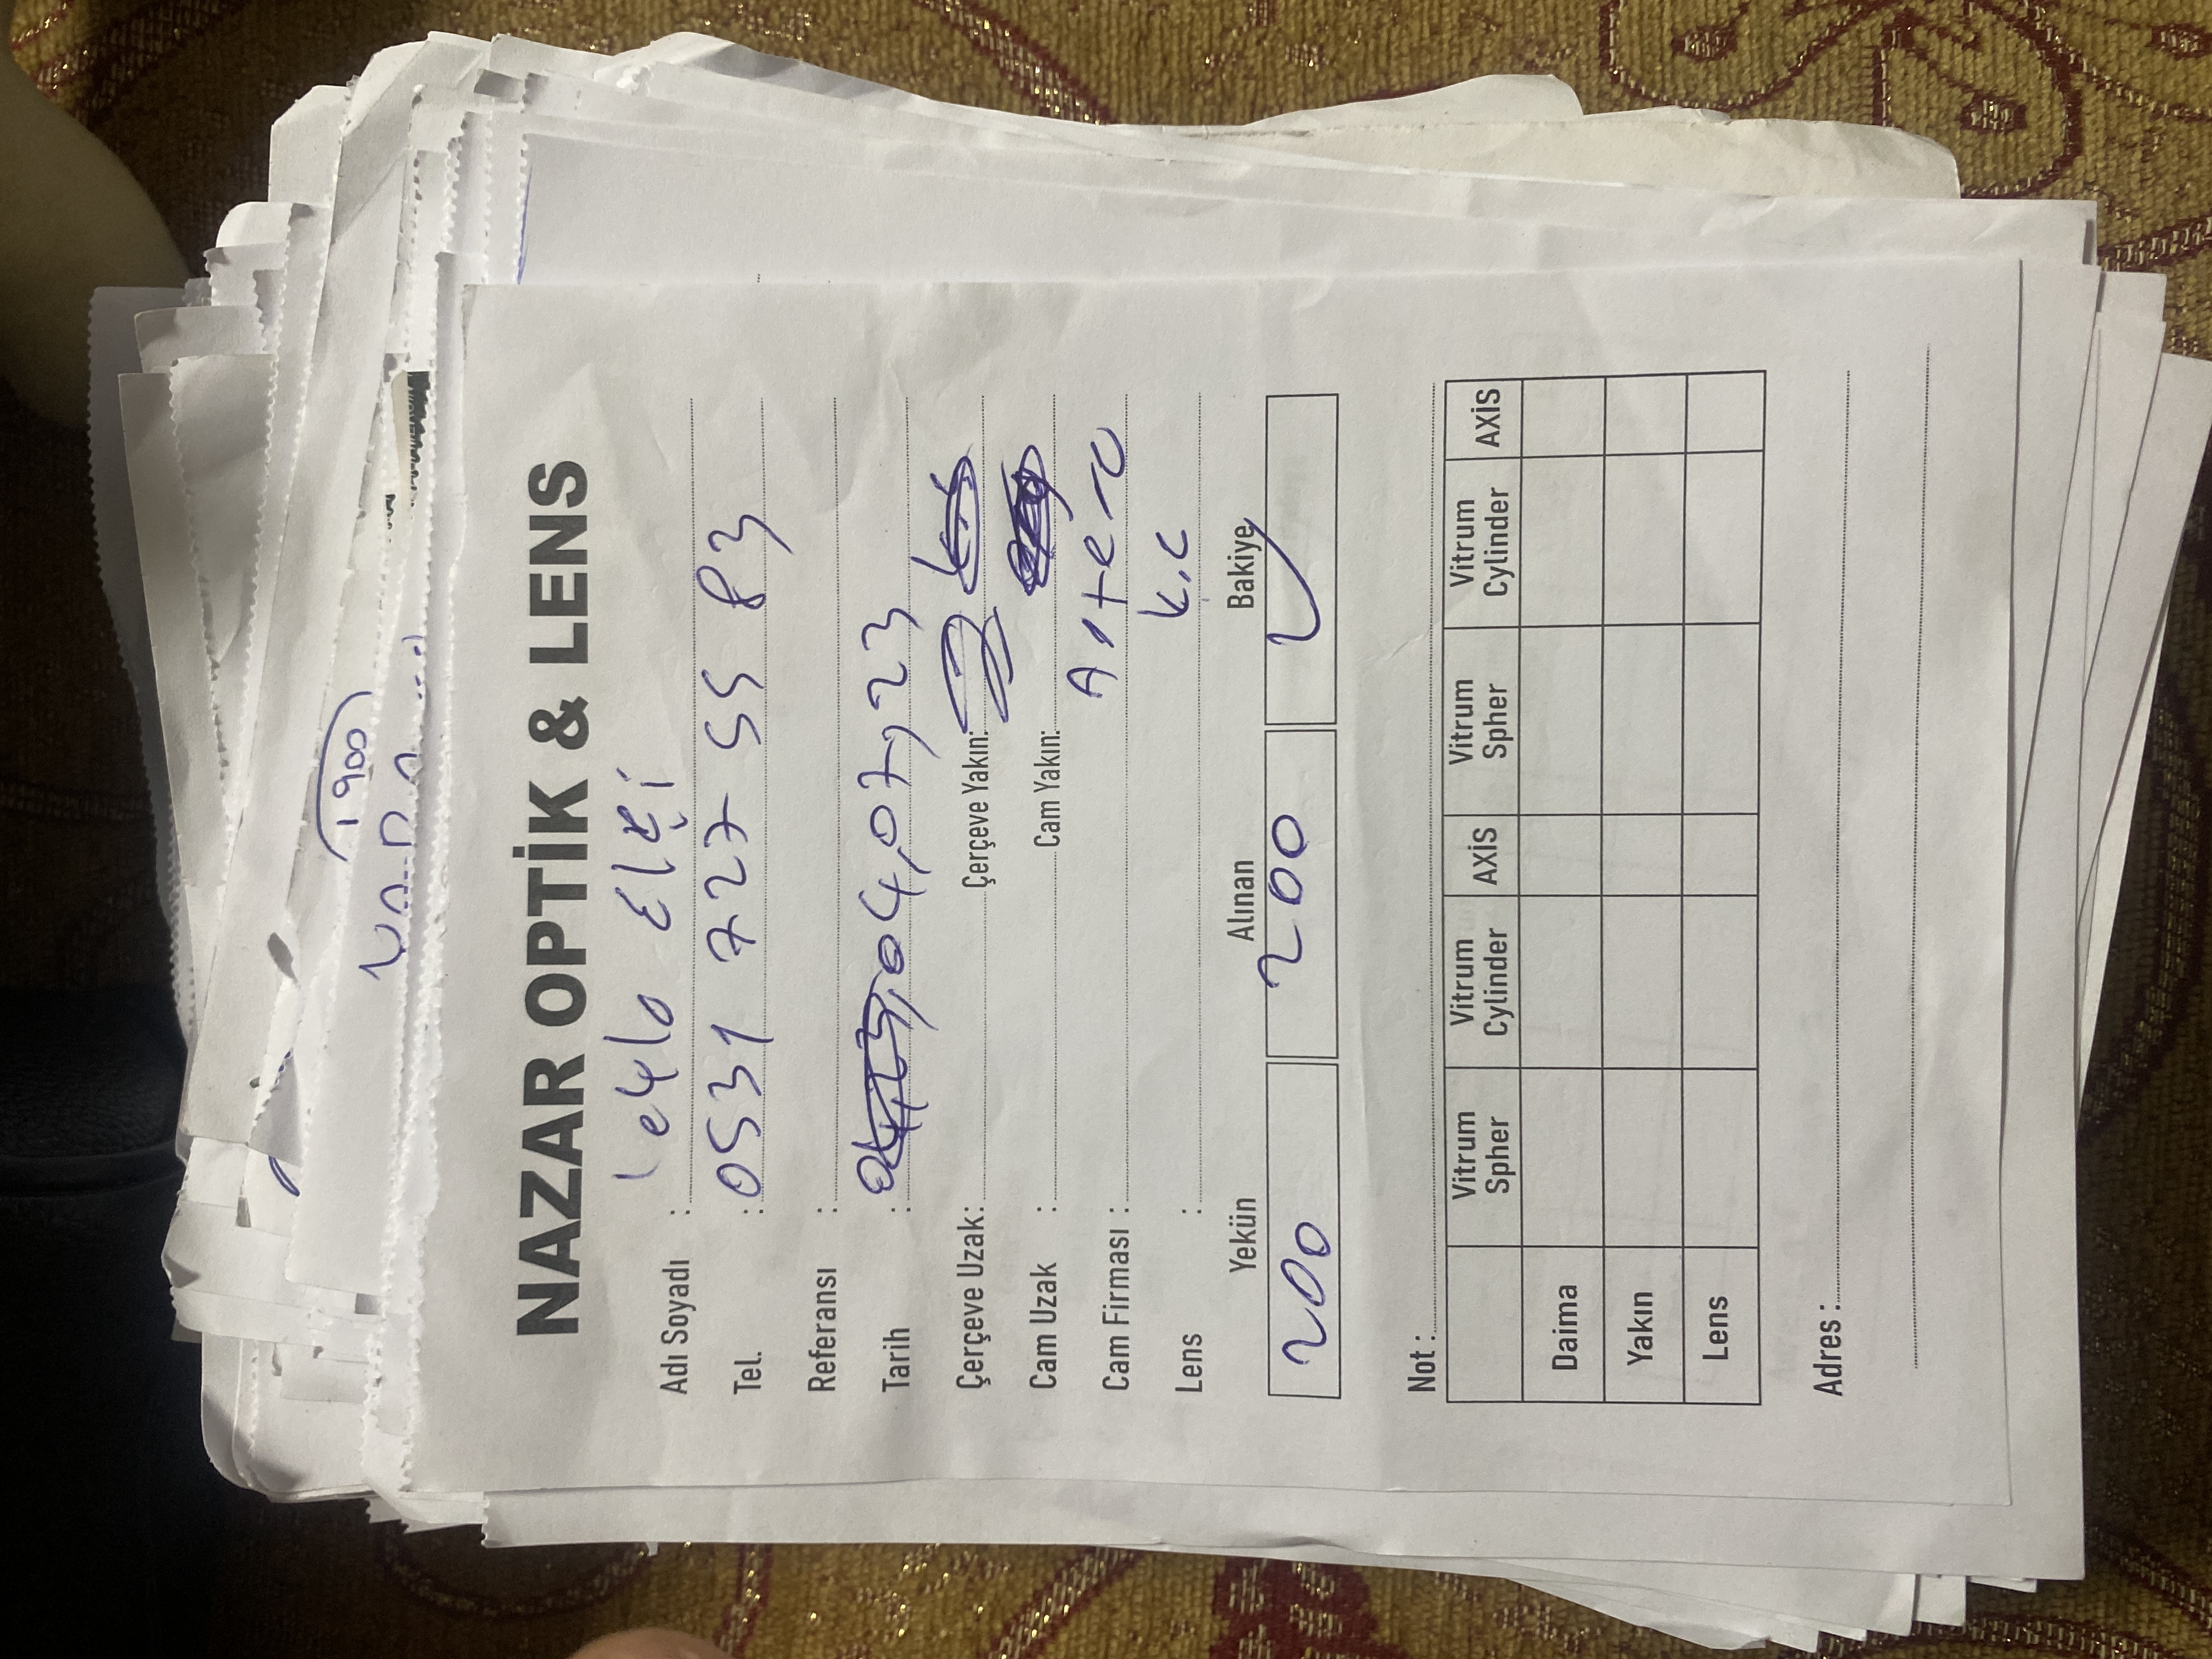 1900
NAZAR OPTİK & LENS
Adı Soyadı : Leyla Elçi
Tel. : 0531 727 55 83
Referansı :
Tarih : 04,07,23
Çerçeve Uzak: Çerçeve Yakın:
Cam Uzak : Cam Yakın:
Cam Firması :
Lens : K.C
Yekün Alınan Bakiye
200 200
Not :
Vitrum Spher Vitrum Cylinder AXİS Vitrum Spher Vitrum Cylinder AXİS
Daima
Yakın
Lens
Adres :